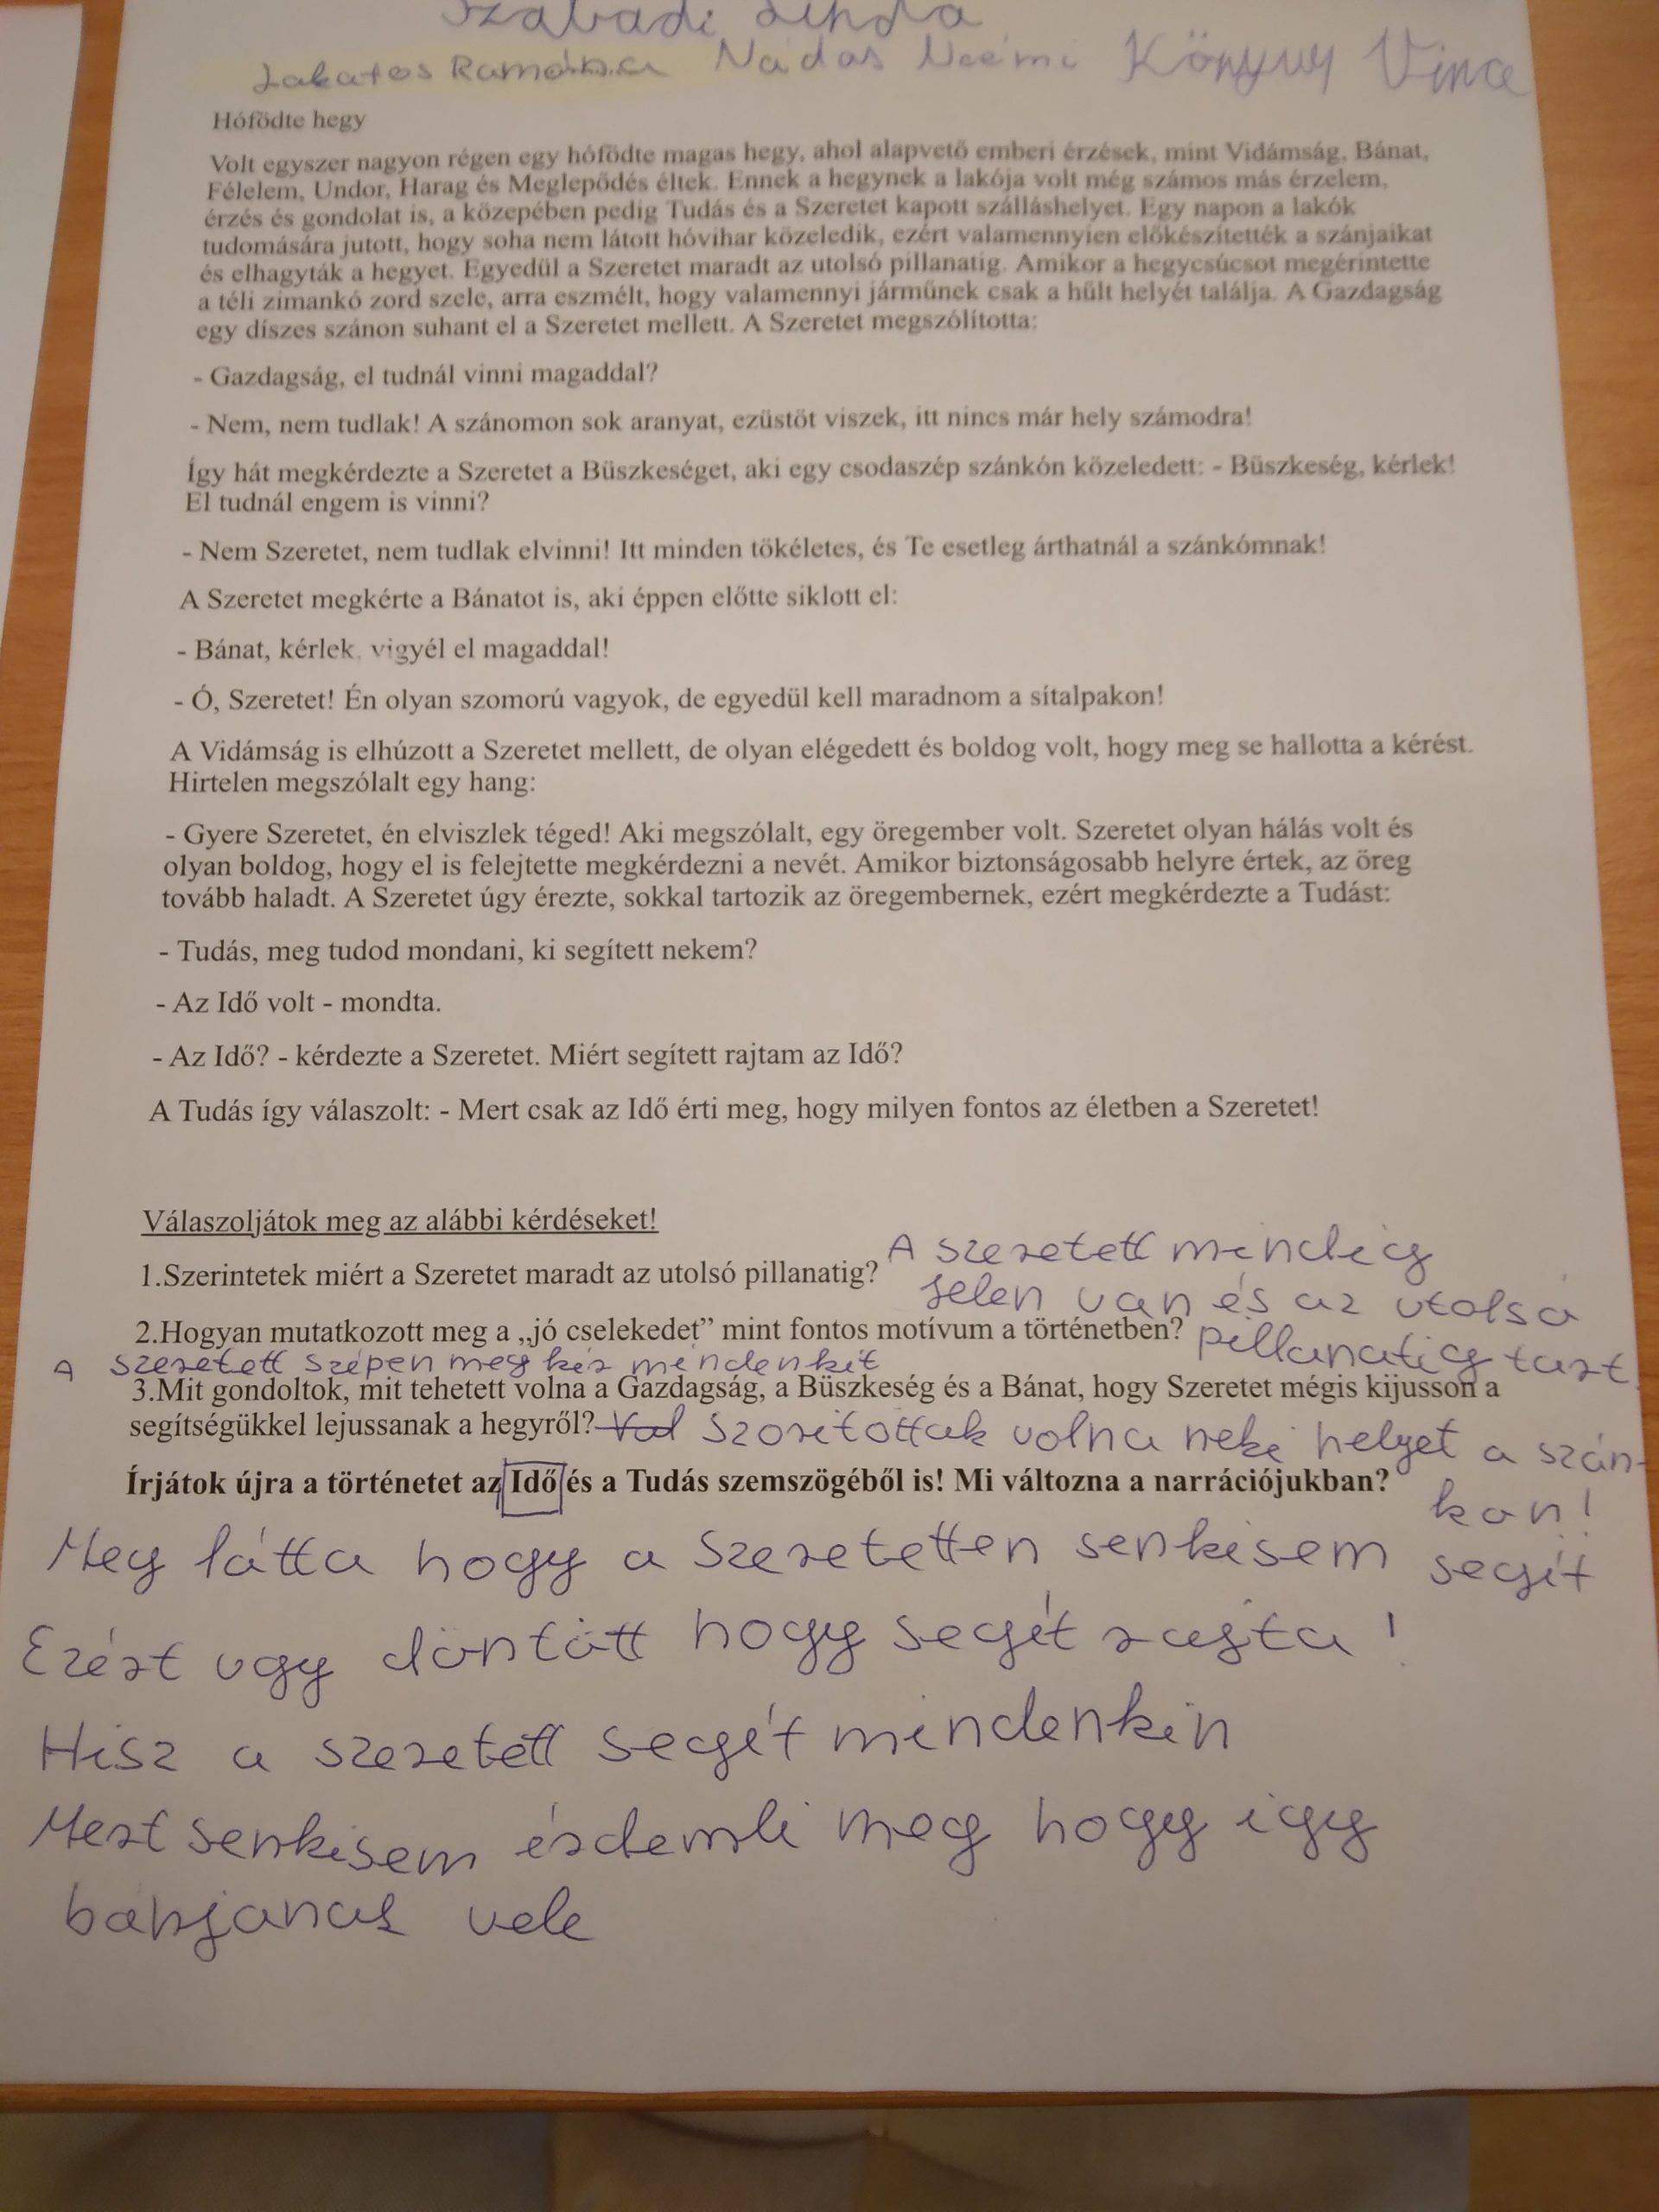 Szabadi Linda
Lakatos Ramóna Nádas Noémi Könyvy Vince
Hófödte hegy
Volt egyszer nagyon régen egy hófödte magas hegy, ahol alapvető emberi érzések, mint Vidámság, Bánat,
Félelem, Undor, Harag és Meglepődés éltek. Ennek a hegynek a lakója volt még számos más érzelem,
érzés és gondolat is, a közepében pedig Tudás és a Szeretet kapott szálláshelyet. Egy napon a lakók
tudomására jutott, hogy soha nem látott hóvihar közeledik, ezért valamennyien előkészítették a szánjaikat
és elhagyták a hegyet. Egyedül a Szeretet maradt az utolsó pillanatig. Amikor a hegycsúcsot megérintette
a téli zimankó zord szele, arra eszmélt, hogy valamennyi járműnek csak a hűlt helyét találja. A Gazdagság
egy díszes szánon suhant el a Szeretet mellett. A Szeretet megszólította:
- Gazdagság, el tudnál vinni magaddal?
- Nem, nem tudlak! A szánomon sok aranyat, ezüstöt viszek, itt nincs már hely számodra!
Így hát megkérdezte a Szeretet a Büszkeséget, aki egy csodaszép szánkón közeledett: - Büszkeség, kérlek!
El tudnál engem is vinni?
- Nem Szeretet, nem tudlak elvinni! Itt minden tökéletes, és Te esetleg árthatnál a szánkómnak!
A Szeretet megkérte a Bánatot is, aki éppen előtte siklott el:
- Bánat, kérlek, vigyél el magaddal!
- Ó, Szeretet! Én olyan szomorú vagyok, de egyedül kell maradnom a sítalpakon!
A Vidámság is elhúzott a Szeretet mellett, de olyan elégedett és boldog volt, hogy meg se hallotta a kérést.
Hirtelen megszólalt egy hang:
- Gyere Szeretet, én elviszlek téged! Aki megszólalt, egy öregember volt. Szeretet olyan hálás volt és
olyan boldog, hogy el is felejtette megkérdezni a nevét. Amikor biztonságosabb helyre értek, az öreg
tovább haladt. A Szeretet úgy érezte, sokkal tartozik az öregembernek, ezért megkérdezte a Tudást:
- Tudás, meg tudod mondani, ki segített nekem?
- Az Idő volt - mondta.
- Az Idő? - kérdezte a Szeretet. Miért segített rajtam az Idő?
A Tudás így válaszolt: - Mert csak az Idő érti meg, hogy milyen fontos az életben a Szeretet!
Válaszoljátok meg az alábbi kérdéseket!
1.Szerintetek miért a Szeretet maradt az utolsó pillanatig? A szeretett mindeig
jelen van és az utolsó
pillanatig tart.
2.Hogyan mutatkozott meg a „jó cselekedet” mint fontos motívum a történetben?
A szeretett szépen meg kér mindenkit
3.Mit gondoltok, mit tehetett volna a Gazdagság, a Büszkeség és a Bánat, hogy Szeretet mégis kijusson a
segítségükkel lejussanak a hegyről? Vol Szorítottak volna neki helyet a szán-
kon!
Írjátok újra a történetet az Idő és a Tudás szemszögéből is! Mi változna a narrációjukban?
Meg látta hogy a Szeretetten senkisem segít
Ezért ugy döntött hogy segít rajta!
Hisz a szeretett segít mindenkin
Mert senkisem érdemli meg hogy igy
bánjanak vele